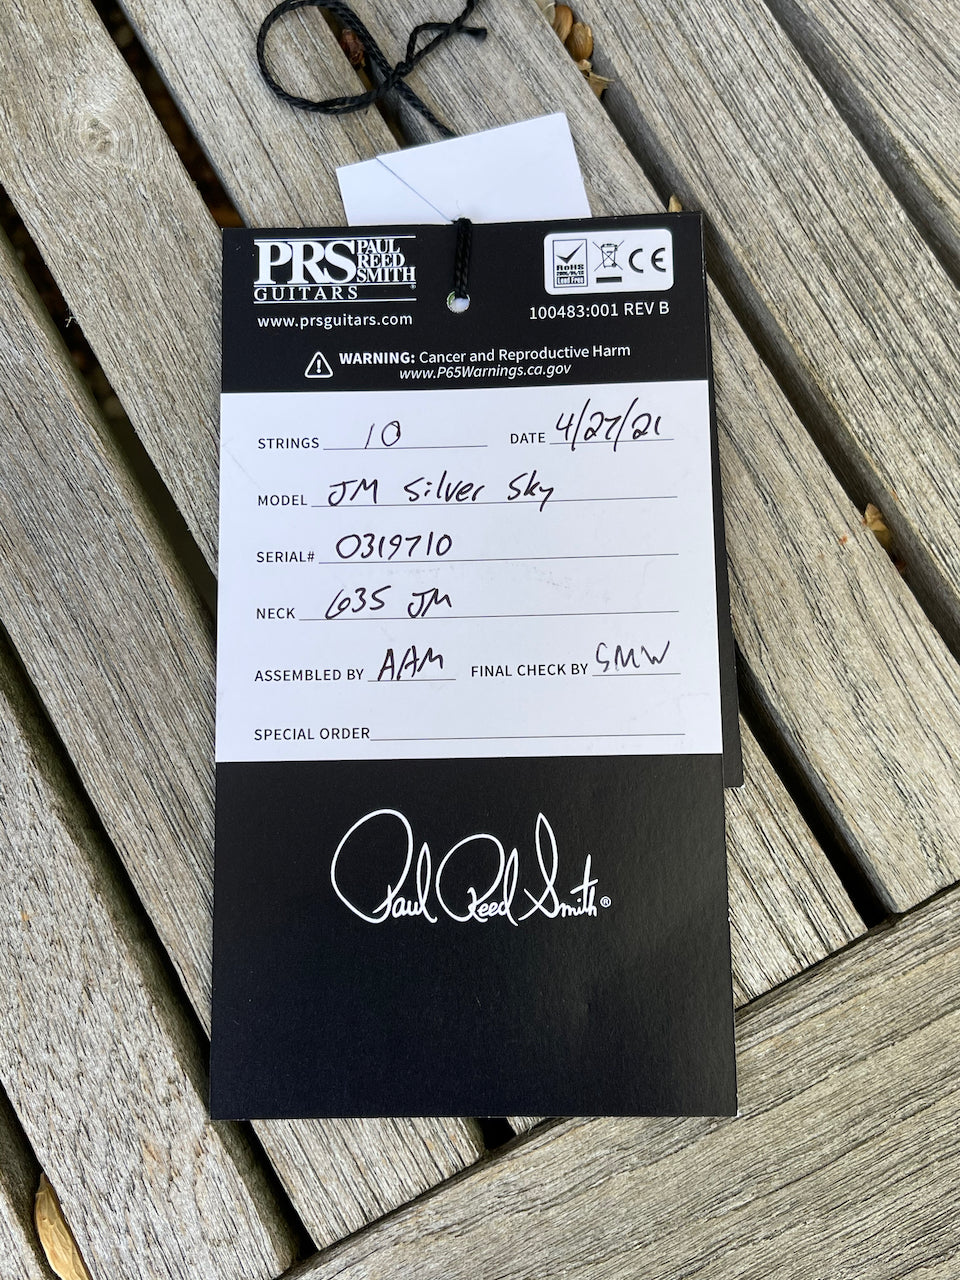 PRS PAUL REED SMITH
GUITARS
www.prsguitars.com
RoHS
Lead Free
CE
100483:001 REV B
WARNING: Cancer and Reproductive Harm
www.P65Warnings.ca.gov
STRINGS 10 DATE 4/27/21
MODEL JM Silver Sky
SERIAL# 0319710
NECK 635 JM
ASSEMBLED BY AAM FINAL CHECK BY SMW
SPECIAL ORDER
Paul Reed Smith®